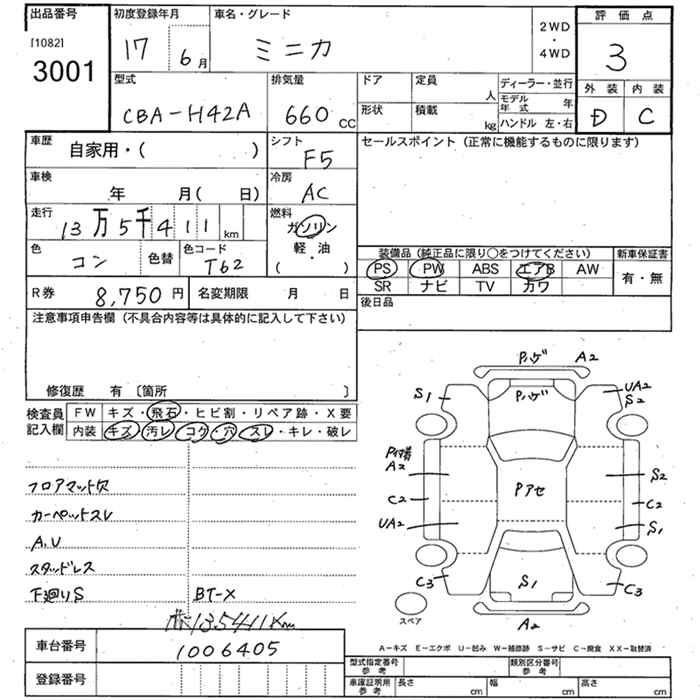 出品番号 初度登録年月 車名・グレード 2WD・4WD 評価点
[1082]
3001
17 6月 ミニカ 3
型式 排気量 ドア 定員 人 ディーラー・並行 外装 内装
CBA-H42A 660 CC 形状 積載 kg モデル年式 年 D C
ハンドル 左・右
車歴 自家用・( ) シフト F5 セールスポイント(正常に機能するものに限ります)
車検 年 月( 日) 冷房 AC
走行 13万5千411km 燃料 ガソリン 軽・油 ( )
色 コン 色替 色コード T62
装備品(純正品に限り○をつけてください) 新車保証書
PS PW ABS エアB AW 有・無
SR ナビ TV カワ
R券 8,750円 名変期限 月 日 後日品
注意事項申告欄(不具合内容等は具体的に記入して下さい)
修復歴 有〔箇所 〕
検査員記入欄 FW キズ・飛石・ヒビ割・リペア跡・X要
内装 キズ・汚レ・コゲ・穴・スレ・キレ・破レ
フロアマット欠
カーペットスレ
A.U
スタッドレス
下廻りS BT-X
135411Km
Pハゲ A2
S1 Pハゲ UA2
S2
P付着
A2 Pアセ S2
C2 C2
UA2 S1
C3 S1 C3
スペア A2
A-キズ E-エクボ U-凹み W-補修跡 S-サビ C-腐食 XX-取替済
車台番号 1006405
登録番号
型式指定番号 参考 類別区分番号 参考
車庫証明用 参考 長さ cm 幅 cm 高さ cm